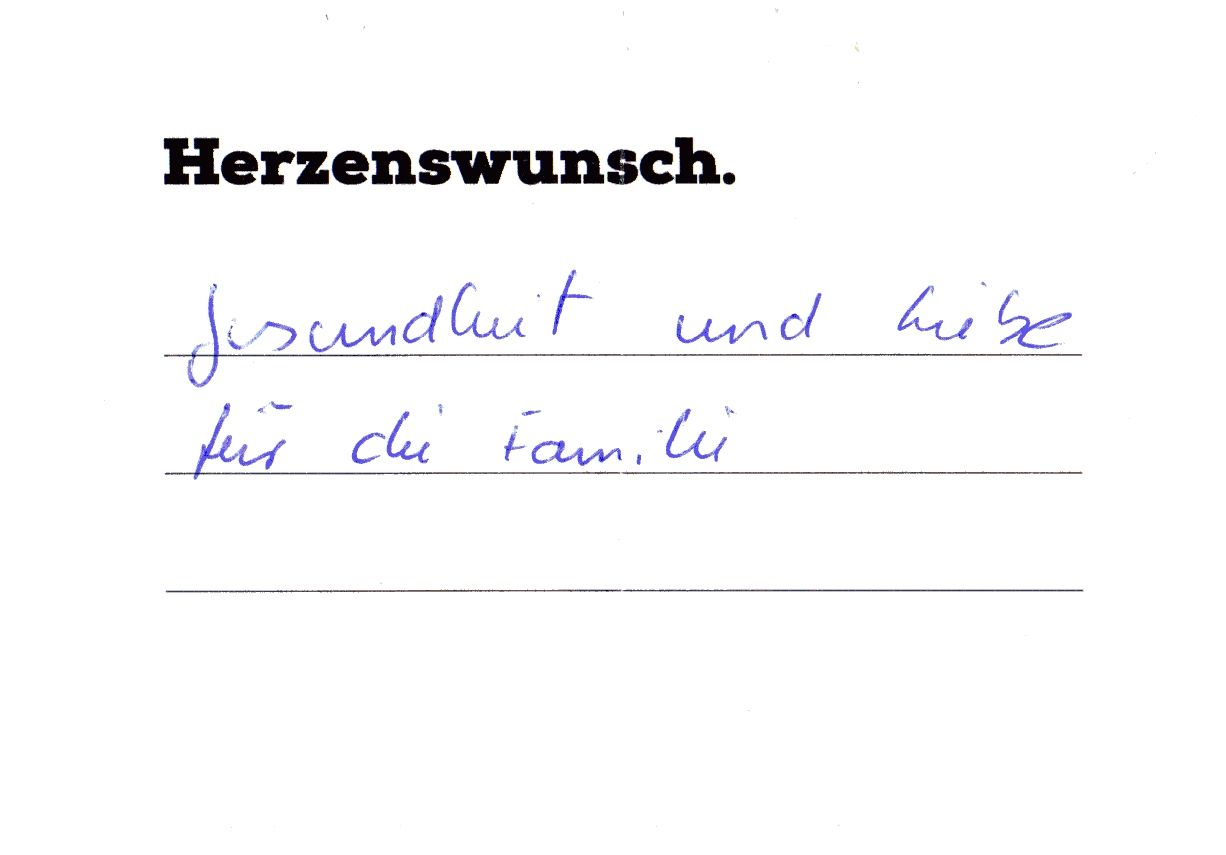 Herzenswunsch.
Gesundheit und Liebe
für die Familie